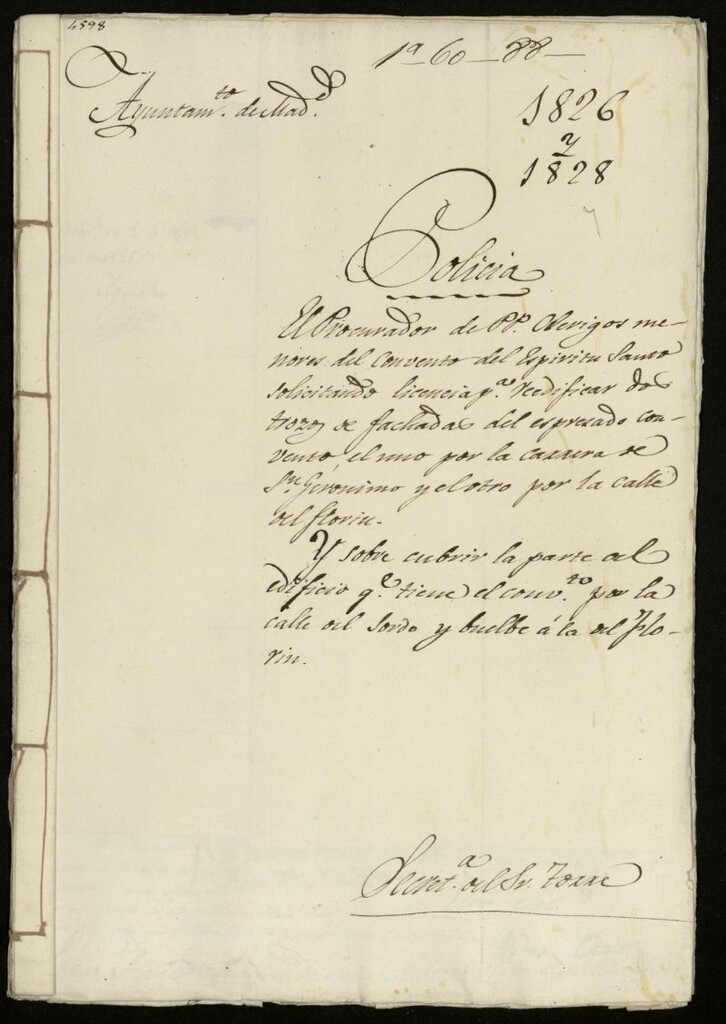 4598
1ª-60-88-
Ayuntamto. de Madd.
1826
y
1828
Policia
El Procurador de PP. Clerigos me-
nores del Convento del Espiritu Santo
solicitando licencia pª. reedificar dos
trozos de fachadas del espresado con-
vento, el uno por la carrera de
Sn. Geronimo y el otro por la calle
del florin.
Y sobre cubrir la parte del
edificio qe. tiene el convto. por la
calle del Sordo y buelbe á la del flo-
rin.
Secretª. del Sr. Torre